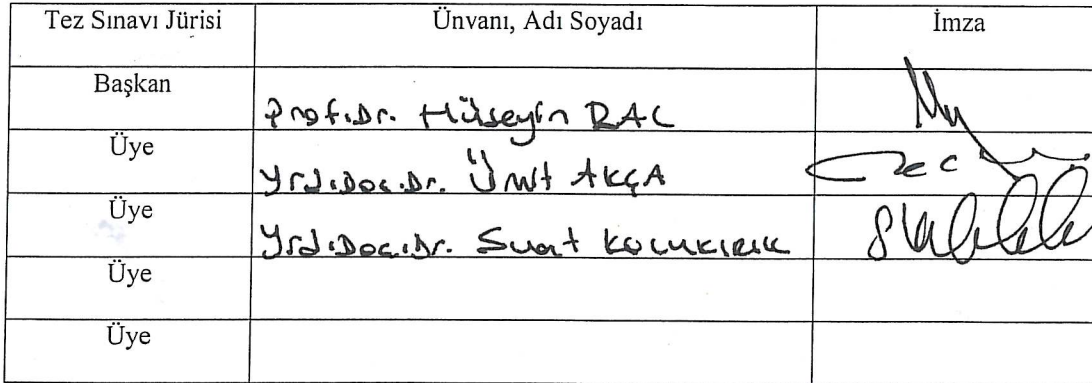 Tez Sınavı Jürisi Ünvanı, Adı Soyadı İmza
Başkan
Prof.Dr. Hüseyin
Üye
Yrd.Doç.Dr. Ümit AKÇA
Üye
Yrd.Doç.Dr. Suat
Üye
Üye